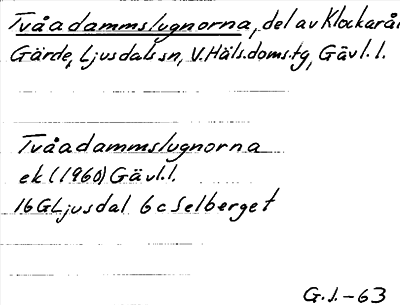 Tvåadammslugnorna, del av Klockarån
Gärde, Ljusdals sn, V. Häls. doms. tg, Gävl. l.
Tvåadammslugnorna
ek (1960) Gävl. l.
16G Ljusdal 6c Selberget
G. J. - 63